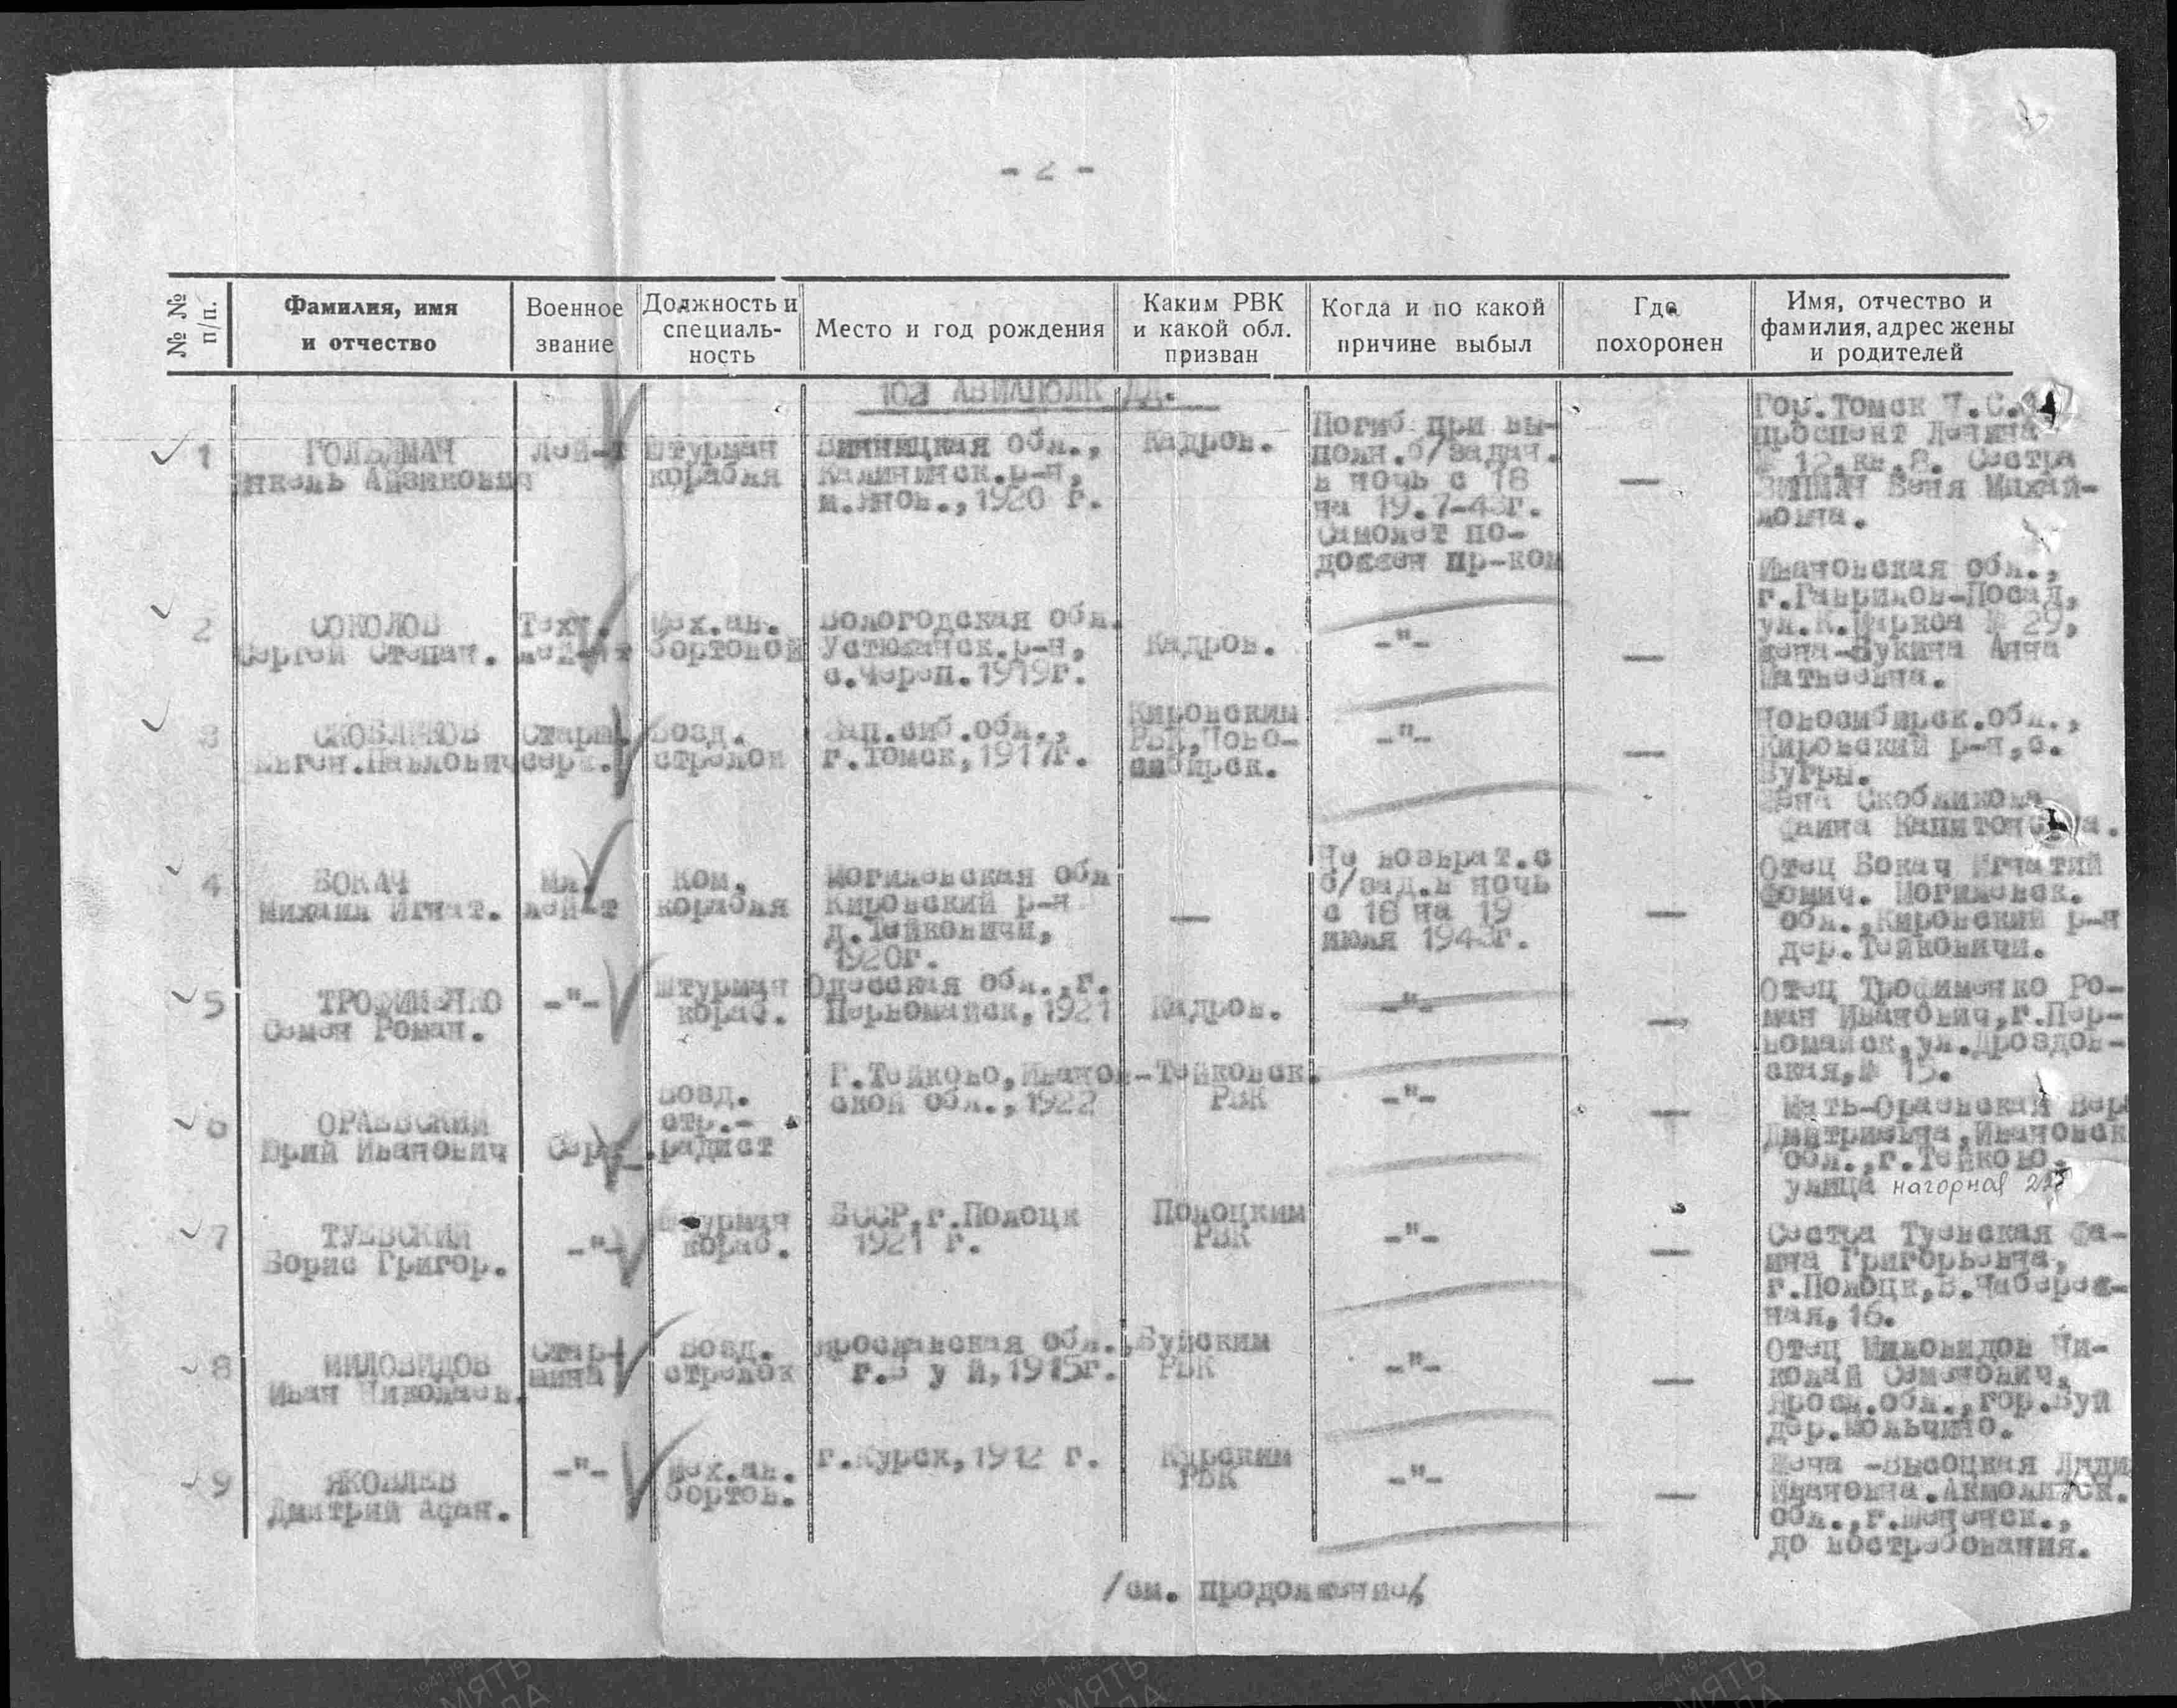 - 2 -
№ № п/п.
Фамилия, имя
и отчество
Военное
звание
Должность и
специаль-
ность
Место и год рождения
Каким РВК
и какой обл.
призван
Когда и по какой
причине выбыл
Где
похоронен
Имя, отчество и
фамилия, адрес жены
и родителей
АВИАПОЛК ДД.
1
ГОЛЬДМАЧ
Айзикович
Лей-т
Штурман
корабля
Винницкая обл.,
Калининск.р-н,
1920 г.
Кадров.
Погиб при вы-
полн.б/задач.
в ночь с 18
на 19.7-43г.
Самолет по-
дожжен пр-ком
—
Гор.Томск
проспект Ленина
№ 12,кв.8. Сестра
Беня Михай-
ловна.
2
СОКОЛОВ
Сергей Степан.
Техн.
лей-т
Мех.ав.
бортовой
Вологодская обл.
Устюжинск.р-н,
с.Череп.1919г.
Кадров.
-"-
—
Ивановская обл.,
г.Гаврилов-Посад,
ул.К.Маркса № 29,
жена-Букина Анна
Матвеевна.
3
СКОБЛИКОВ
Евген.Павлович
Старш.
серж.
Возд.
стрелок
Зап.сиб.обл.,
г.Томск,1917г.
Кировским
РВК,Ново-
сибирск.
-"-
—
Новосибирск.обл.,
Кировский р-н,с.
Бугры.
Жена Скобликова
Фаина Капитоновна.
4
БОКАЧ
Михаил Игнат.
Мл.
лей-т
Ком.
корабля
Могилевская обл
Кировский р-н
д.Тейковичи,
1920г.
—
Не возврат.с
б/зад.в ночь
с 18 на 19
июля 1943г.
—
Отец Бокач Игнатий
Фомич. Могилевск.
обл.,Кировский р-н
дер.Тейковичи.
5
ТРОФИМЕНКО
Семен Роман.
-"-
Штурман
кораб.
Одесская обл.,г.
Первомайск,1921
Кадров.
-"-
—
Отец Трофименко Ро-
ман Иванович,г.Пер-
вомайск,ул.Дроздов-
ская,№ 15.
6
ОРАЕВСКИЙ
Юрий Иванович
Серж.
Возд.
стр.-
радист
Г.Тейково,Иванов-
ской обл.,1922
Тейковск.
РВК
-"-
—
Мать-Ораевская Вер
Дмитриевна,Ивановск
обл.,г.Тейково,
улица нагорная
7
ТУЕВСКИЙ
Борис Григор.
-"-
Штурман
кораб.
БССР,г.Полоцк
1921 г.
Полоцким
РВК
-"-
—
Сестра Туевская Фа-
ина Григорьевна,
г.Полоцк,В.Набереж-
ная,16.
8
МИЛОВИДОВ
Иван Николаев.
Стар-
шина
Возд.
стрелок
Ярославская обл.,
г.Б у й,1915г.
Буйским
РВК
-"-
—
Отец Миловидов Ни-
колай Семенович,
Яросл.обл.,гор.Буй
дер.Мольчино.
9
ЯКОВЛЕВ
Дмитрий Афан.
-"-
Мех.ав.
бортов.
г.Курск,1912 г.
Курским
РВК
-"-
—
Жена -Высоцкая Лиди
Ивановна.Акмолинск.
обл.,г.
до востребования.
/см. продолжение/